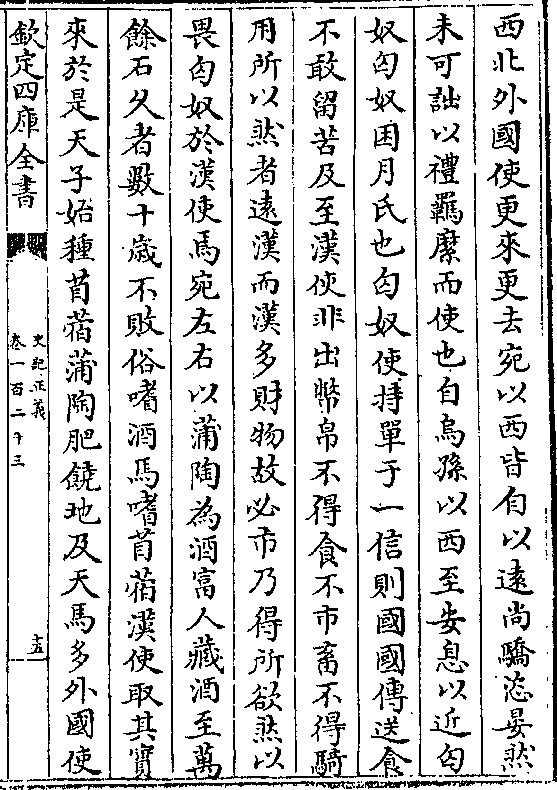 西北外國使更來更去宛以西皆自以遠尚驕恣晏然
未可詘以禮羈縻而使也自烏孫以西至安息以近匈
奴匈奴困月氏也匈奴使持單于一信則國國傳送食
不敢留苦及至漢使非出幣帛不得食不市畜不得騎
用所以然者遠漢而漢多財物故必市乃得所欲然以
畏匈奴於漢使馬宛左右以蒲陶為酒富人藏酒至萬
餘石久者數十歲不敗俗嗜酒馬嗜苜蓿漢使取其實
來於是天子始種苜蓿蒲陶肥饒地及天馬多外國使
欽定四庫全書
史記正義
卷一百二十三
十五